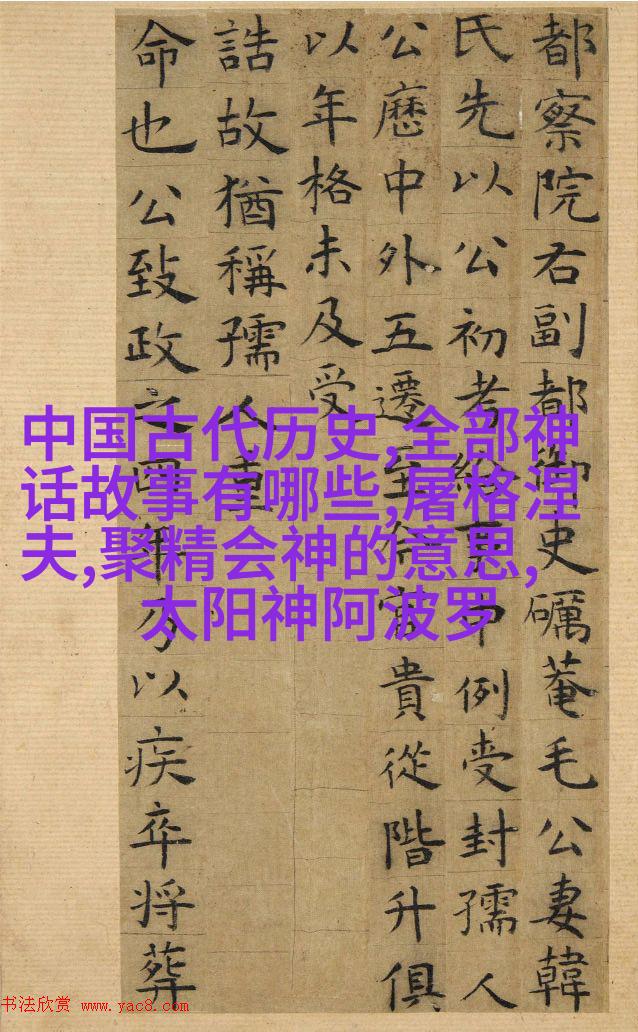 都察院右副都御史礪菴毛公妻韓
氏先以公初考例受封孺人
公歷中外五遷至貴從階升俱
以年格未及受
誥故猶稱孺人重
命也公致政之四年以疾卒將葬
中国古代历史,全部神
话故事有哪些,屠格涅
夫,聚精会神的意思,
太阳神阿波罗
书法欣赏 www.yac8.com